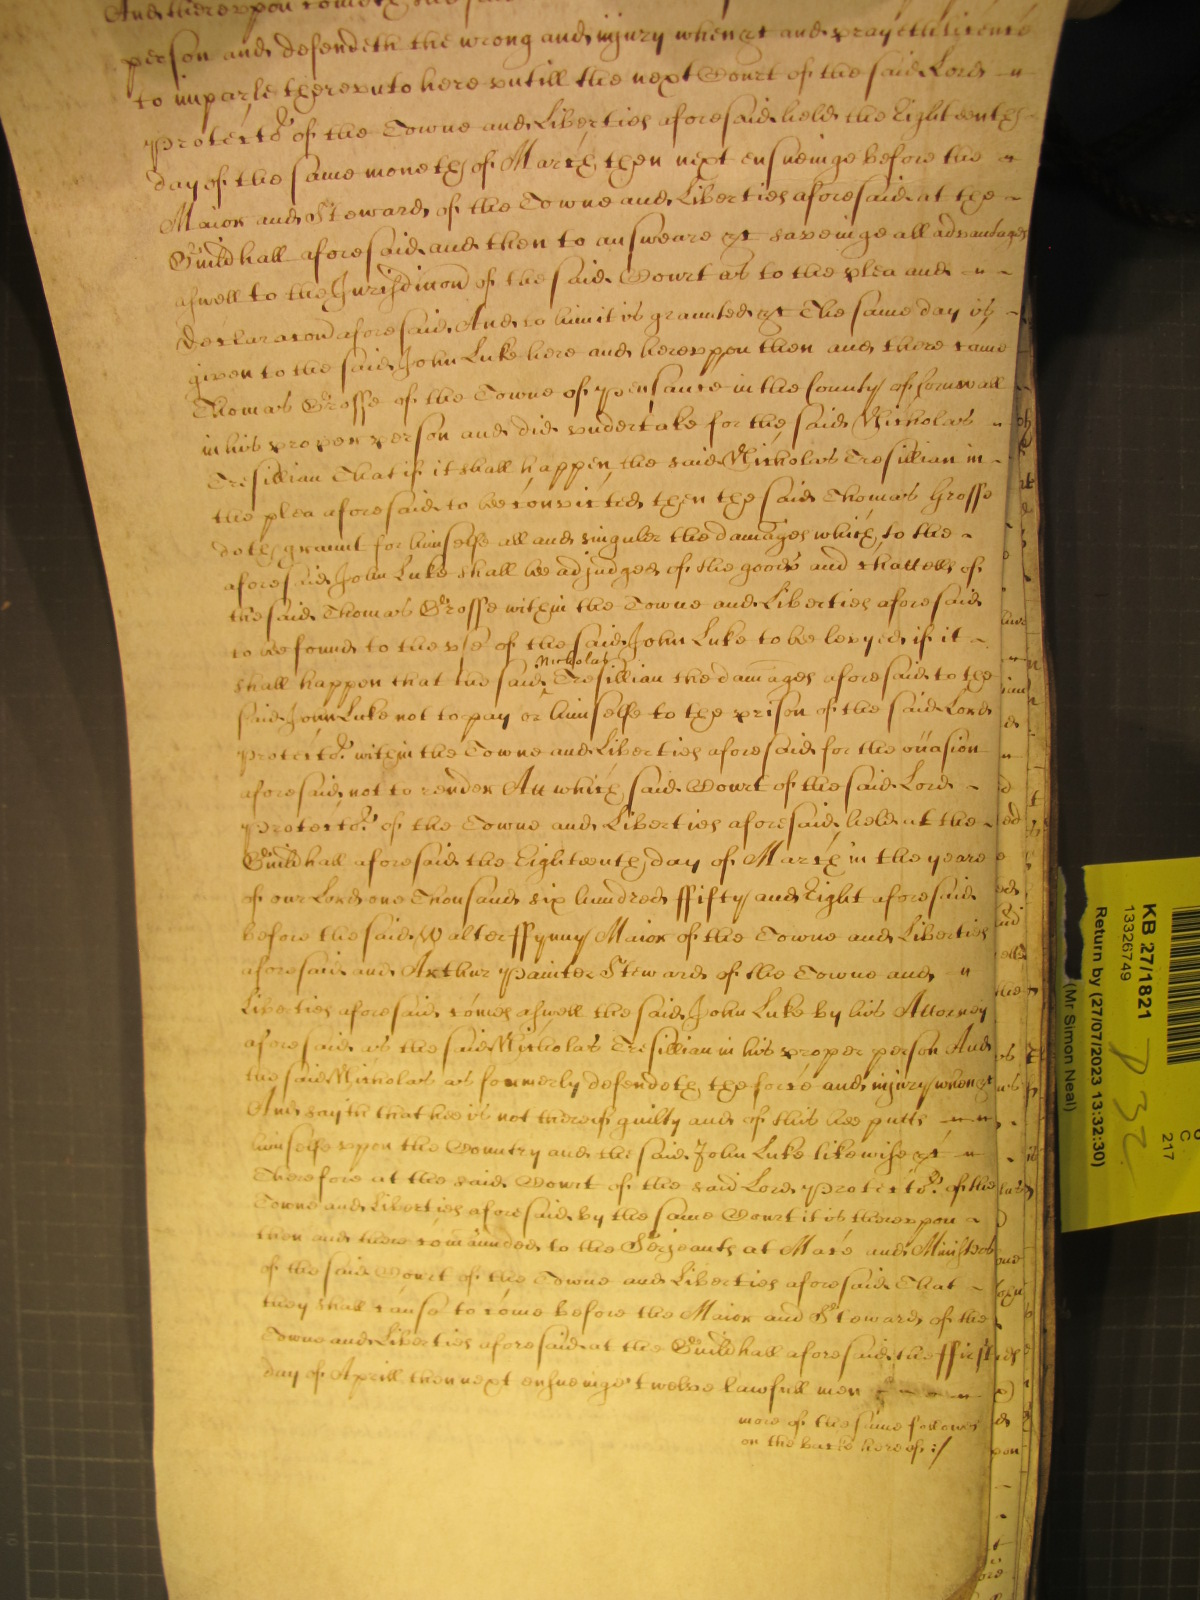 And thereupon cometh the said
person and defendeth the wrong and injury when &c and prayeth licence
to imparle thereunto here untill the next Court of the said Lord
Protector of the Towne and Liberties aforesaid held the Eighteenth
day of the same moneth of March then next ensueinge before the
Maior and Steward of the Towne and Liberties aforesaid at the
Guildhall aforesaid and then to answeare &c saveinge all advantages
aswell to the Jurisdiccon of the said Court as to the plea and
declaracon aforesaid And to him it is graunted &c The same day is
given to the said John Luke here and hereuppon then and there came
Thomas Grosse of the Towne of Pensance in the County of Cornwall
in his proper person and did undertake for the said Nicholas
Tresillian That if it shall happen the said Nicholas Tresillian in
the plea aforesaid to bee convicted then the said Thomas Grosse
doth graunt for himselfe all and singuler the damages which to the
aforesaid John Luke shall be adjudged of the goods and chattells of
the said Thomas Grosse within the Towne and Liberties aforesaid
to be found to the use of the said John Luke to be levyed if it
shall happen that the said Nicholas Tresillian the damages aforesaid to the
said John Luke not to pay or himselfe to the prison of the said Lord
Protector within the Towne and Liberties aforesaid for the occasion
aforesaid not to render At which said Court of the said Lord
Protector of the Towne and Liberties aforesaid held at the
Guildhall aforesaid the Eighteenth day of March in the yeare
of our Lord one Thousand six hundred ffifty and Eight aforesaid
before the said Walter ffynny Maior of the Towne and Liberties
aforesaid and Arthur Painter Steward of the Towne and
Liberties aforesaid comes aswell the said John Luke by his Attorney
aforesaid as the said Nicholas Tresillian in his proper person And
the said Nicholas as formerly defendeth the force and injury when &c
And sayth that hee is not thereof guilty and of this hee putts
himselfe upon the Country and the said John Luke likewise &c
Therefore at the said Court of the said Lord Protector of the
Towne and Liberties aforesaid by the same Court it is thereupon
then and there comaunded to the Serjeants at Mace and Ministers
of the said Court of the Towne and Liberties aforesaid That
they shall cause to come before the Maior and Steward of the
Towne and Liberties aforesaid at the Guildhall aforesaid the ffirst
day of Aprill then next ensueinge twelve lawfull men
more of the same followes
on the backe hereof :/
KB 27/1821
13326749
Return by (27/07/2023 13:32:30)
(Mr Simon Neal)
217
P 32